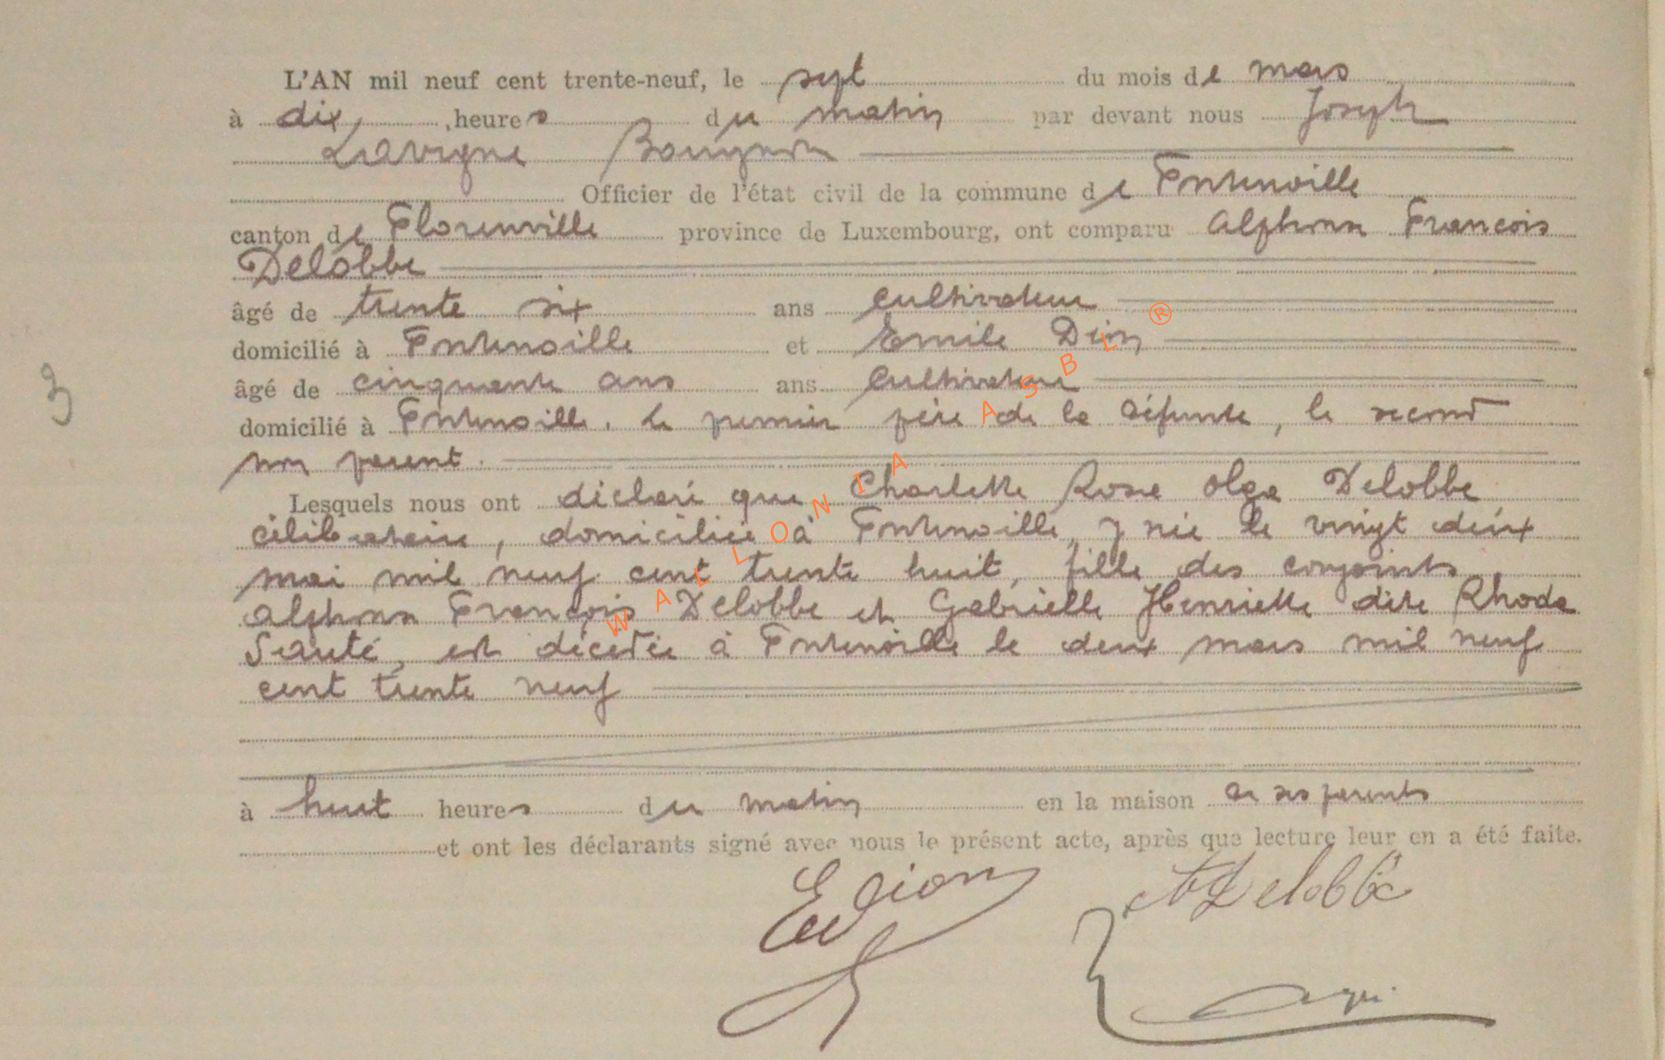 3
L'AN mil neuf cent trente-neuf, le sept du mois de mars
à dix heures du matin par devant nous Joseph
Lavigne
Officier de l'état civil de la commune de Fontenoille
canton de Florenville province de Luxembourg, ont comparu Alphonse François
Delobbe
âgé de trente six ans cultivateur
domicilié à Fontenoille et Emile Dion
âgé de cinquante ans ans cultivateur
domicilié à Fontenoille, le premier père de la défunte, le second
non parent.
Lesquels nous ont déclaré que Charlette Rose Olga Delobbe
célibataire, domiciliée à Fontenoille, y née le vingt deux
mai mil neuf cent trente huit, fille des conjoints
Alphonse François Delobbe et Gabrielle Henriette dite Rhoda
Santé, est décédée à Fontenoille le deux mars mil neuf
cent trente neuf
à huit heures du matin en la maison de ses parents
et ont les déclarants signé avec nous le présent acte, après que lecture leur en a été faite.
E Dion
A Delobbe
WALLONIA ASBL ®